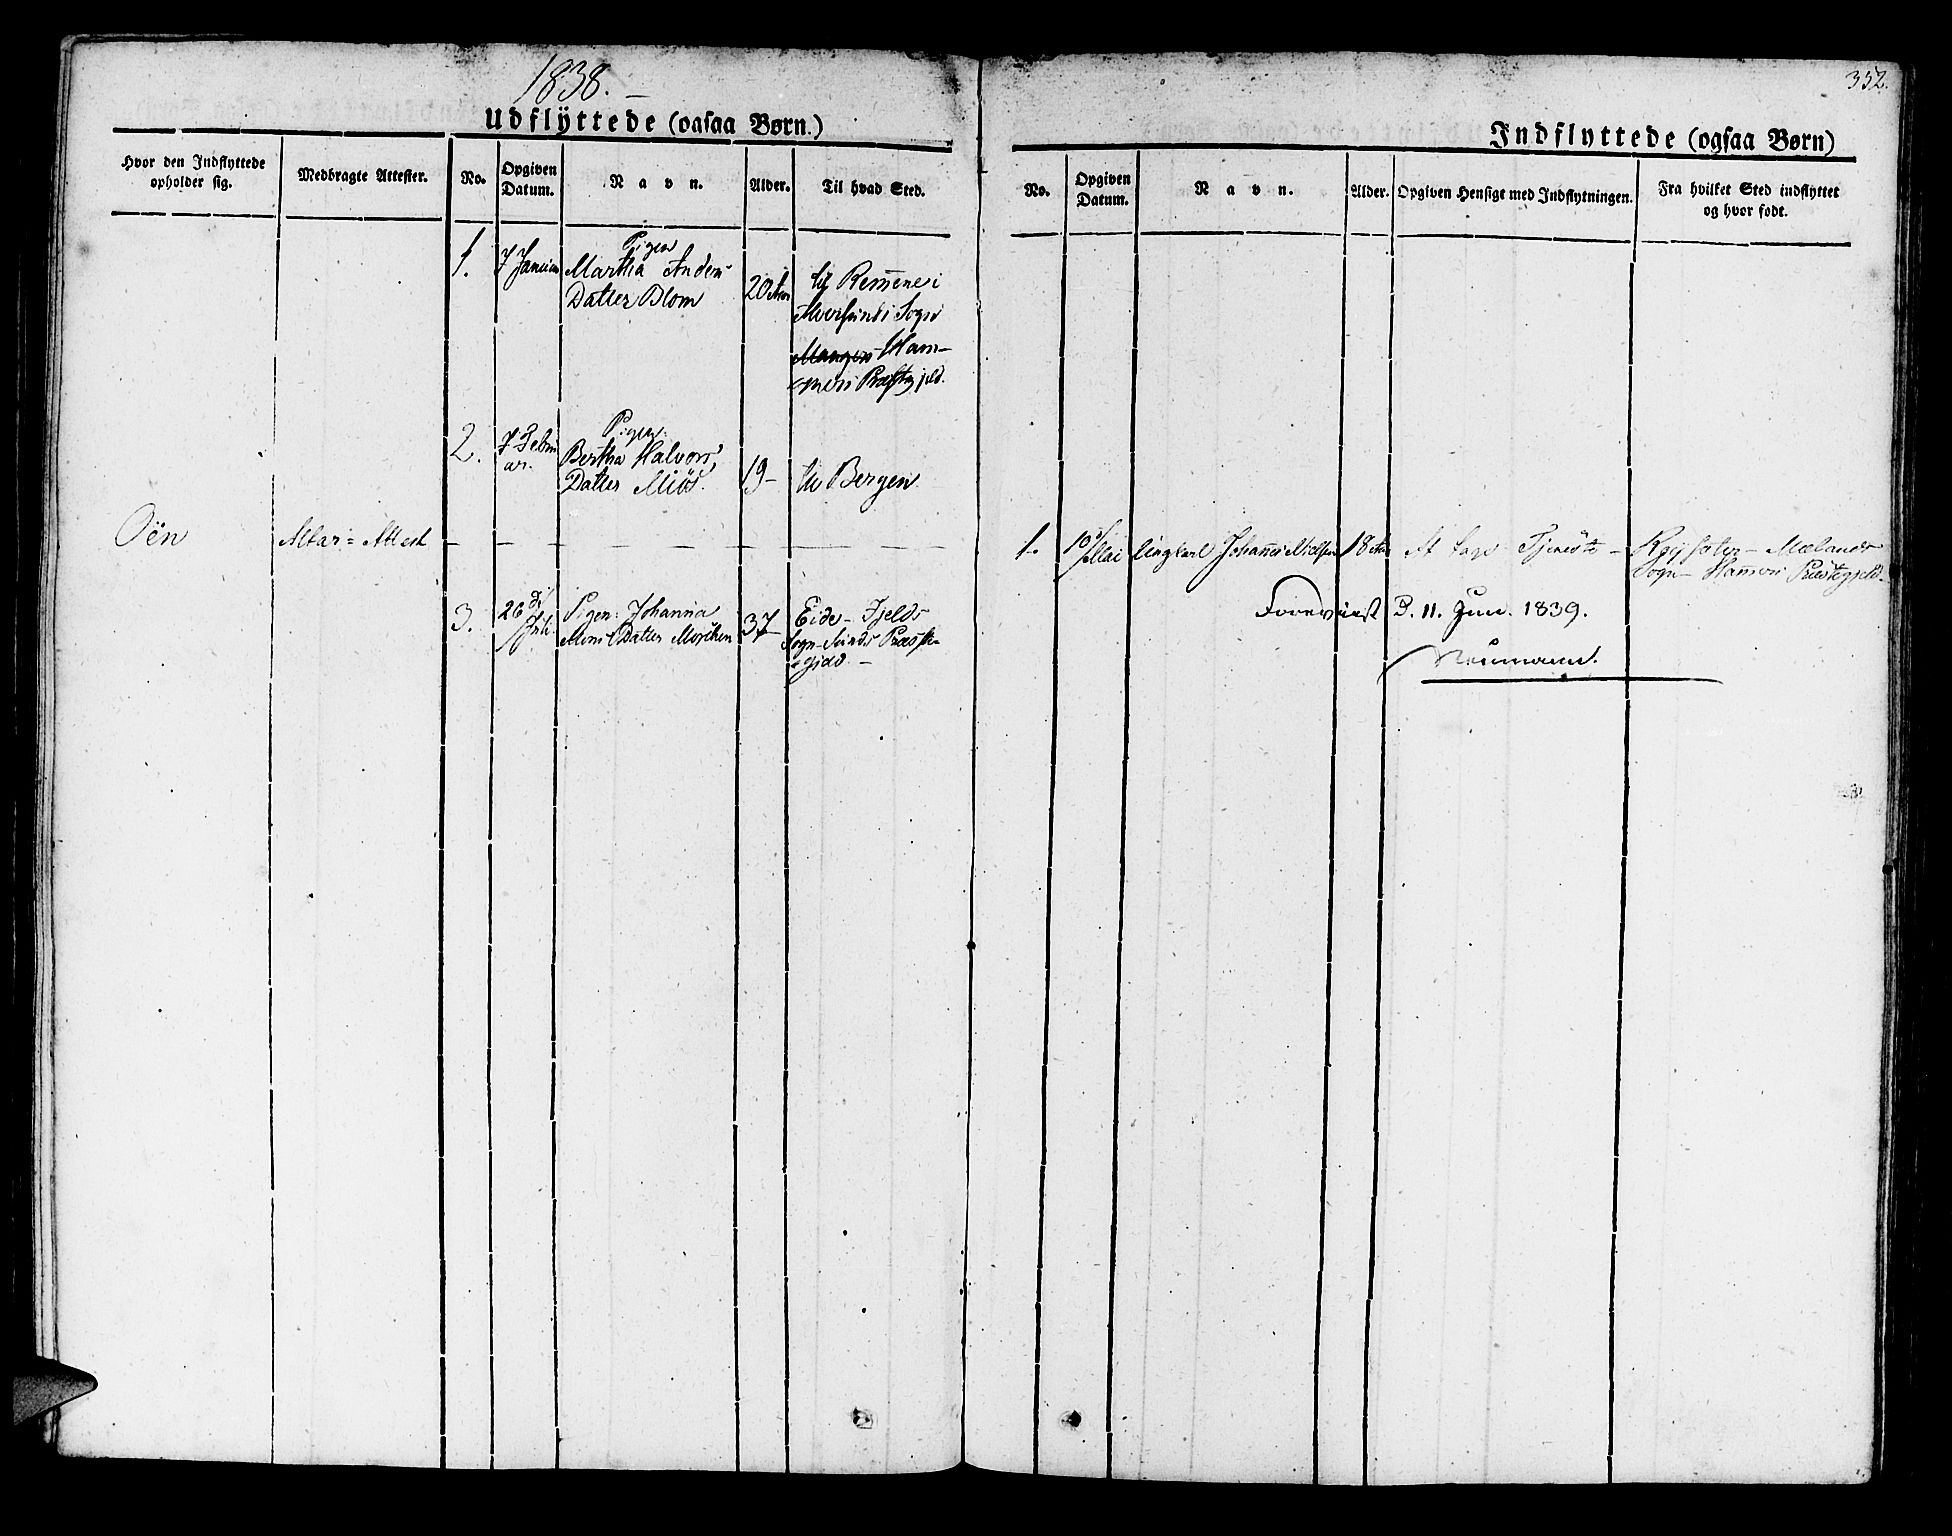 1838. –
352.
Udflÿttede (ogsaa Børn.)
Hvor den Indflyttede
opholder sig.
Medbragte Attester.
No.
Opgiven
Datum.
Navn.
Alder.
Til hvad Sted.
1.
7 Januar
Pigen
Martha Anders
Datter Blom
20 Aar
til Rem̄ene i
Alversunds Sogn
Mangers Ham-
mers Præstegjeld.
2.
7 Febru
ar.
Pigen:
Bertha Halvors
Datter Miös.
19–
til Bergen.
Oën
Altar= Attest
3.
26 di
Juli
Pigen: Johanna
Mons Datter
37
Eide – Fjelds
Sogn Sunds Præste-
gjeld –
Indflyttede (ogsaa Børn)
No.
Opgiven
Datum.
Navn.
Alder.
Opgiven Hensigt med Indflytningen.
Fra hvilket Sted indflyttet
og hvor født.
1.
10de
Mai
Ungkarl Johan̄es Nielsen
18 Aar
At tage Tjeneste –
Mælands
Sogn – Ham̄ers Præstegjeld.
Foreviist D. 11. Jun. 1839.
Neumann.